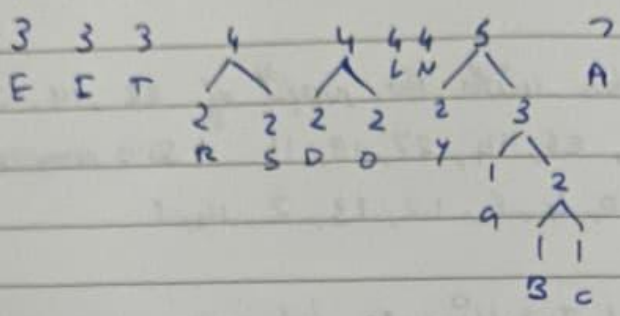 3 3 3 4 4 4 4 5 7
E I T L N A
2 2 2 2 2 3
R S D O Y 1 2
g 1 1
B C